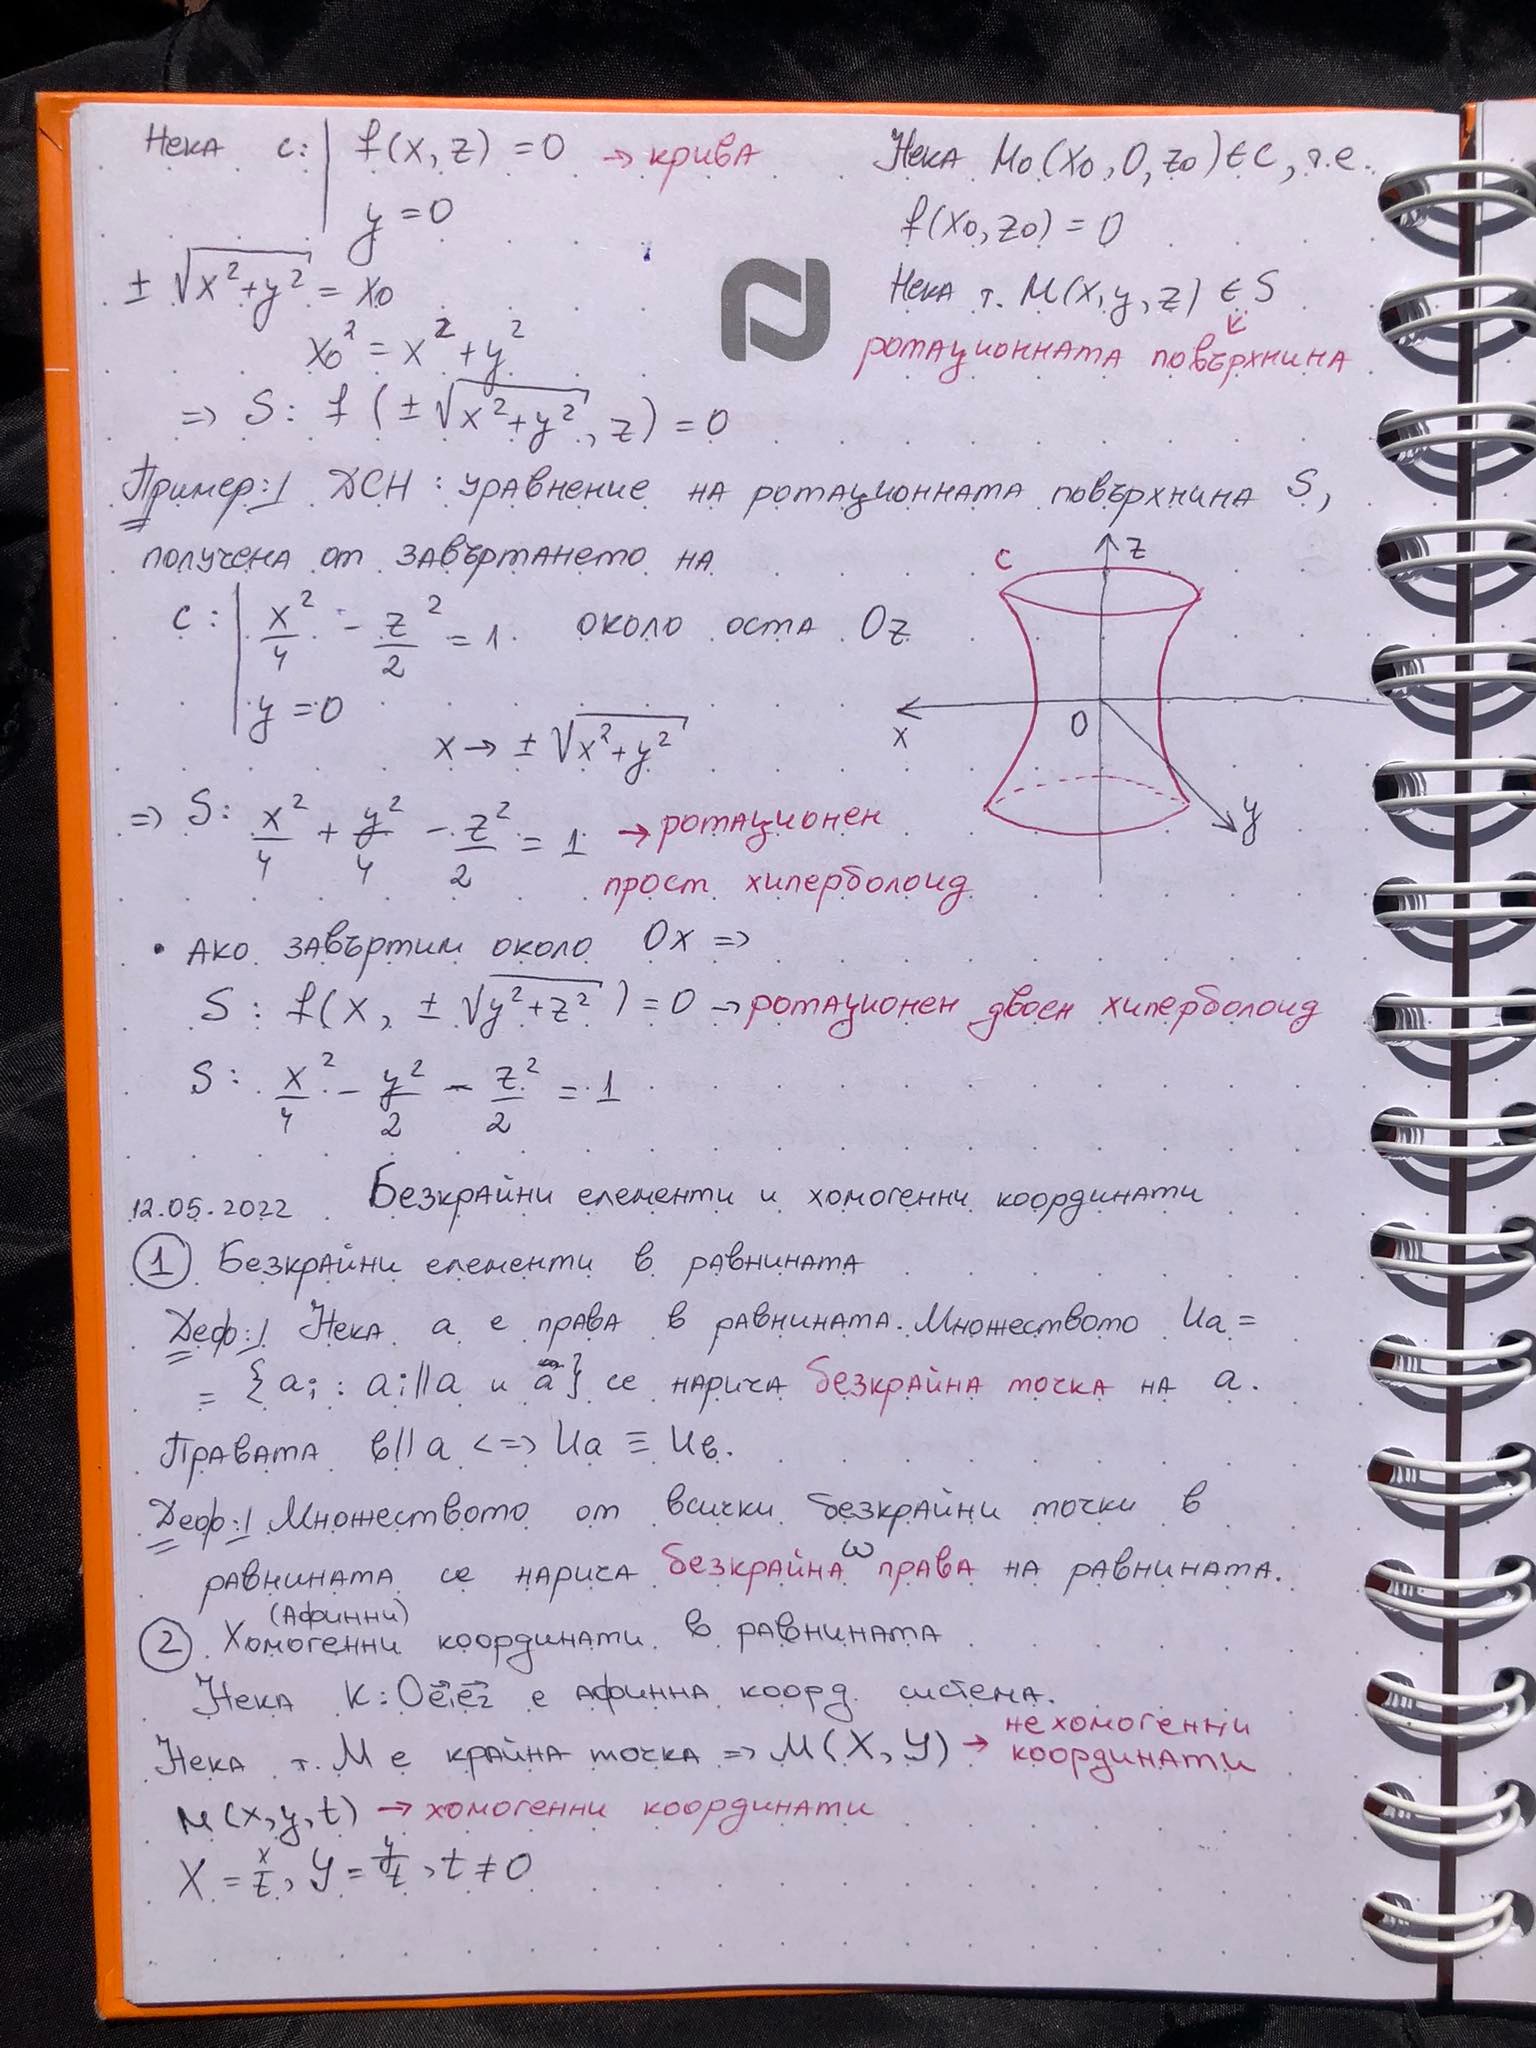 Нека c: | f(x, z) = 0 → крива
y = 0
± √x²+y² = x₀
x₀² = x² + y²
=> S: f (± √x²+y², z) = 0
Нека M₀(x₀, 0, z₀) ∈ c, т.е.
f(x₀, z₀) = 0
Нека т. M(x, y, z) ∈ S
ротационната повърхнина
Пример:| ДСН: уравнение на ротационната повърхнина S,
получена от завъртането на
c: | x²/4 - z²/2 = 1 около оста Oz
y = 0
x → ± √x²+y²
c
z
x
O
y
=> S: x²/4 + y²/4 - z²/2 = 1 → ротационен
прост хиперболоид
• Ако завъртим около Ox =>
S: f(x, ± √y²+z²) = 0 → ротационен двоен хиперболоид
S: x²/4 - y²/2 - z²/2 = 1
12.05.2022 Безкрайни елементи и хомогенни координати
① Безкрайни елементи в равнината
Деф:| Нека a е права в равнината. Множеството Ua =
= {ai : ai || a и a} се нарича безкрайна точка на a.
Правата b || a <=> Ua ≡ Ub.
Деф:| Множеството от всички безкрайни точки в
равнината се нарича безкрайна ω права на равнината.
(Афинни)
② Хомогенни координати в равнината
Нека K: Oe⃗₁e⃗₂ е афинна коорд. система.
Нека т. M е крайна точка => M(X, Y) → нехомогенни
координати
M(x, y, t) → хомогенни координати
X = x/t, Y = y/t, t ≠ 0